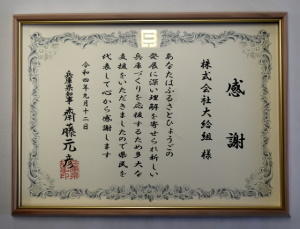 感謝
株式会社大給組 様
あなたはふるさとひょうごの
発展に深い理解を寄せられ新しい
兵庫づくりを応援するため多大な
支援をいただきましたので県民を
代表して心から感謝します
令和四年九月十二日
兵庫県知事 齋藤元彦